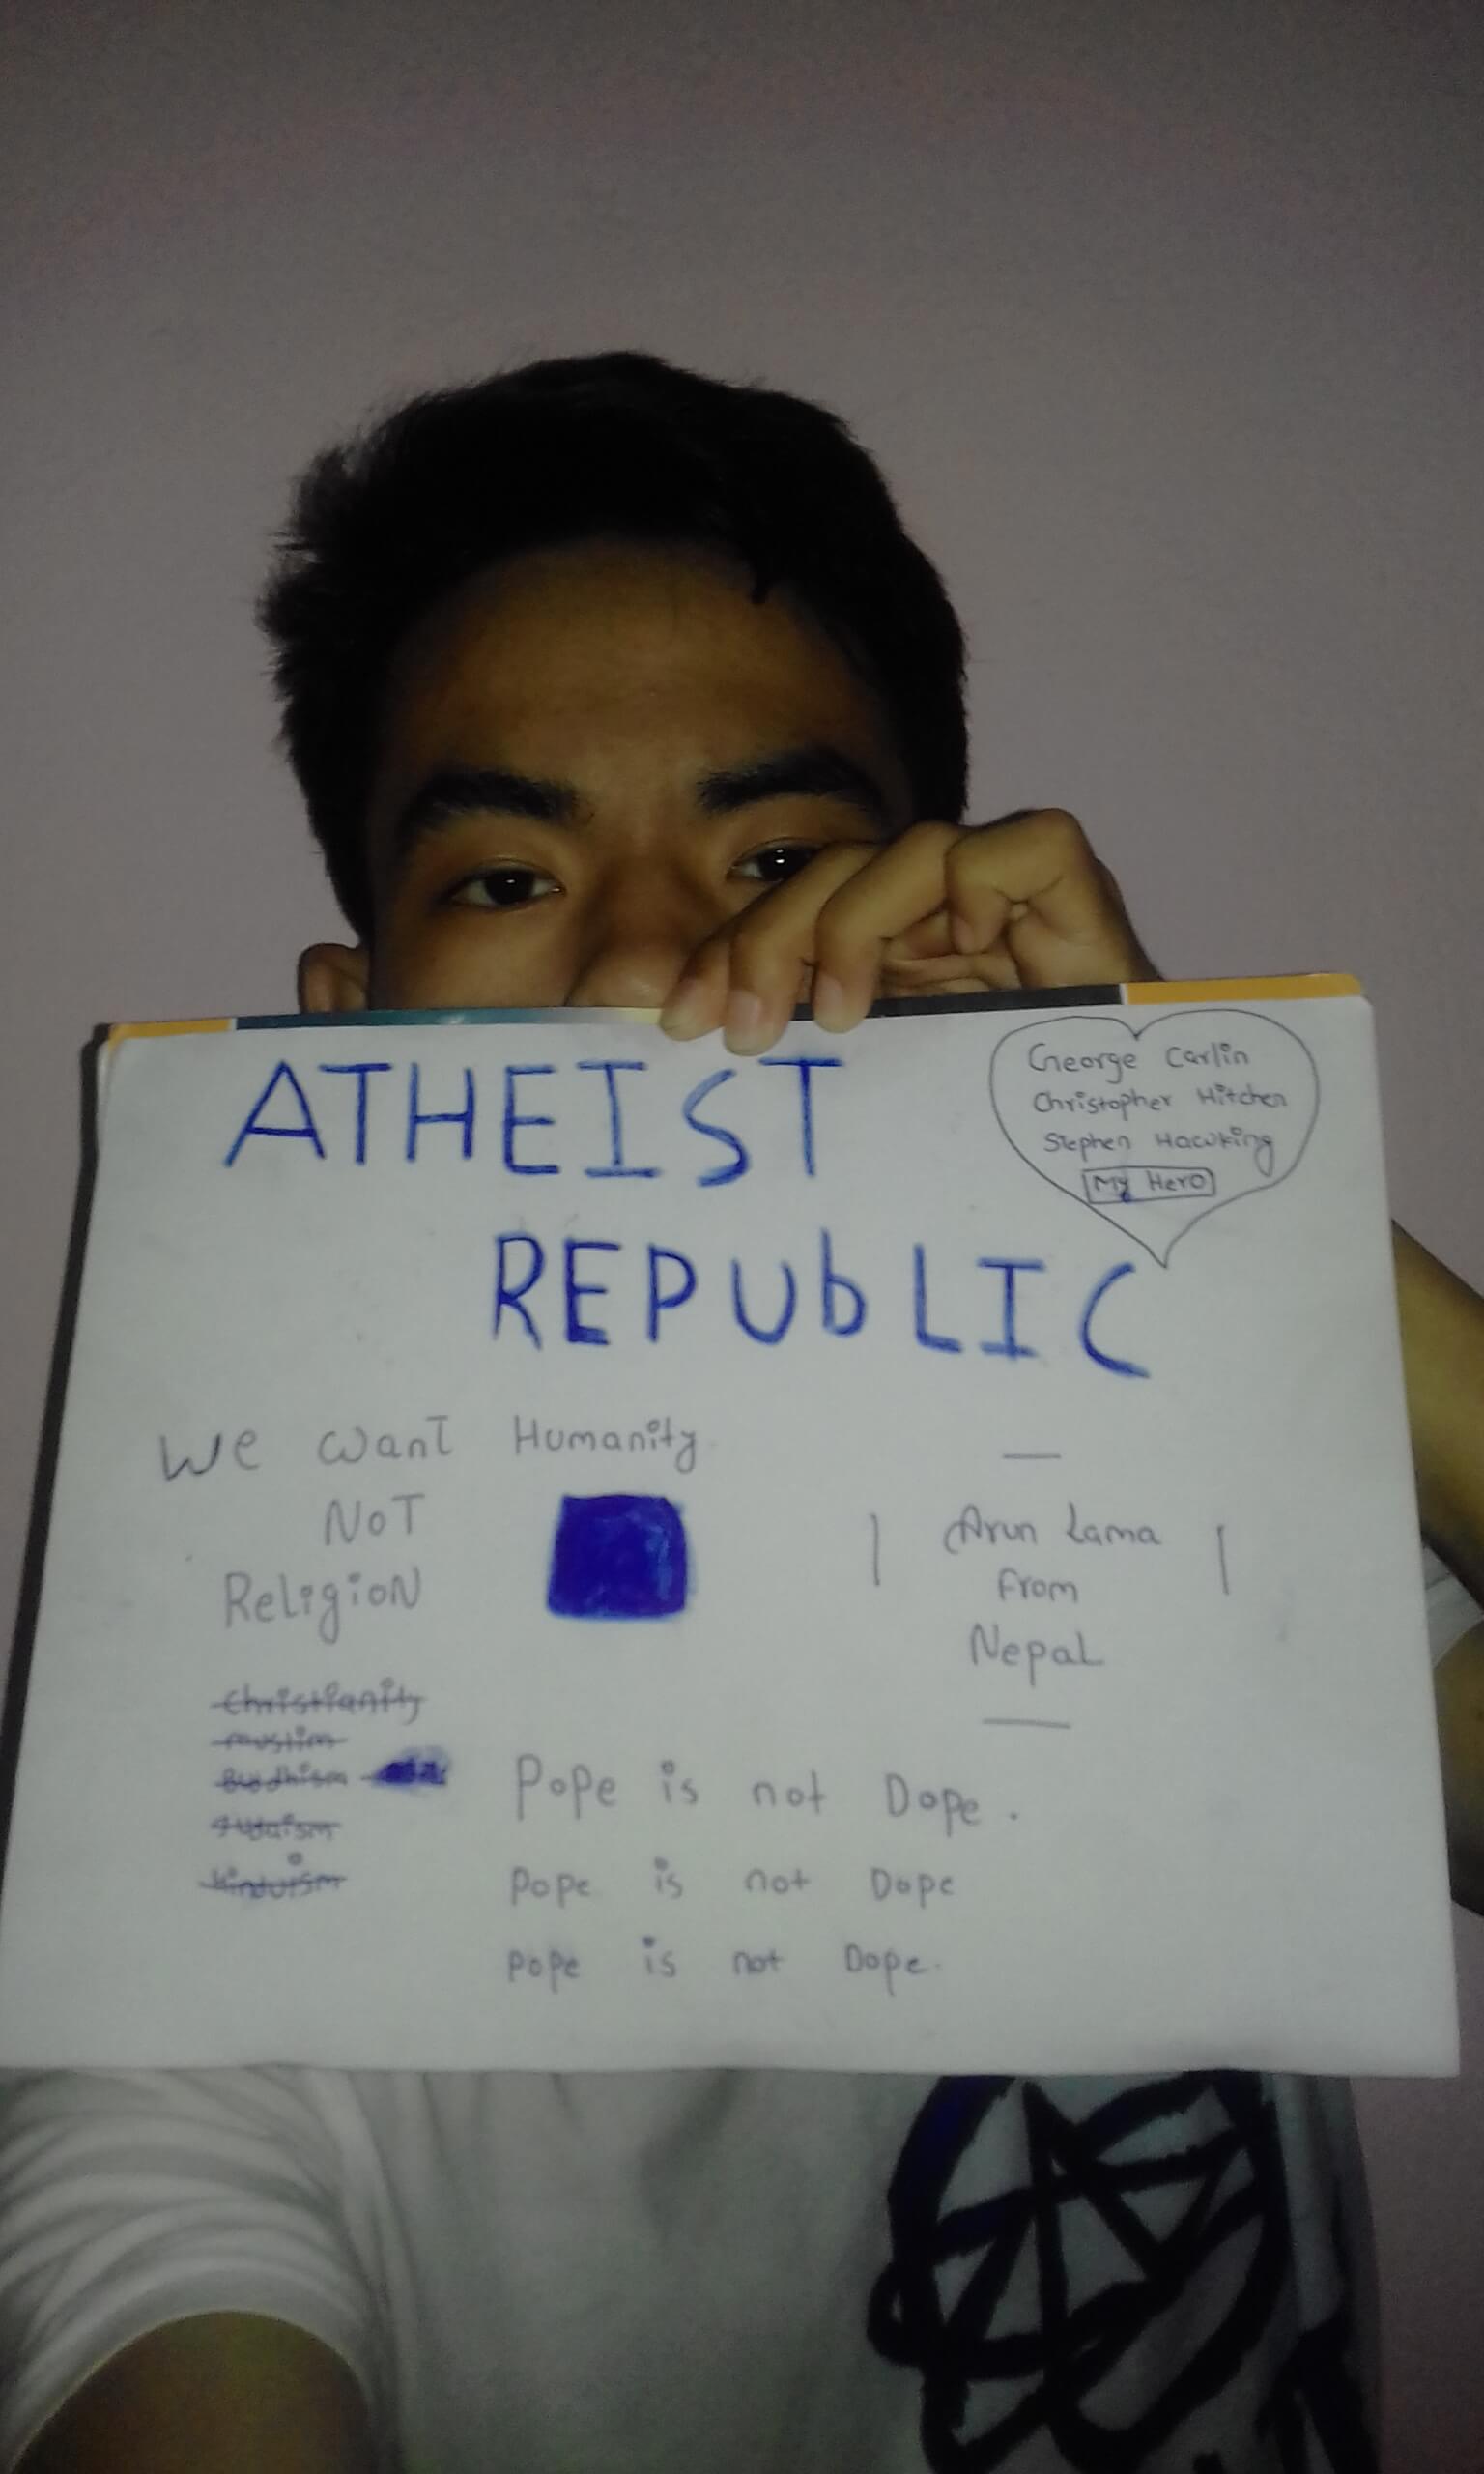 ATHEIST
REPUbLIC
George Carlin
Christopher Hitchen
Stephen Hawking
My Hero
We want Humanity
NOT
ReligioN
Christianity
muslim
Buddhism
Judaism
Hinduism
Arun Lama
From
Nepal
Pope is not Dope.
Pope is not Dope
Pope is not Dope.